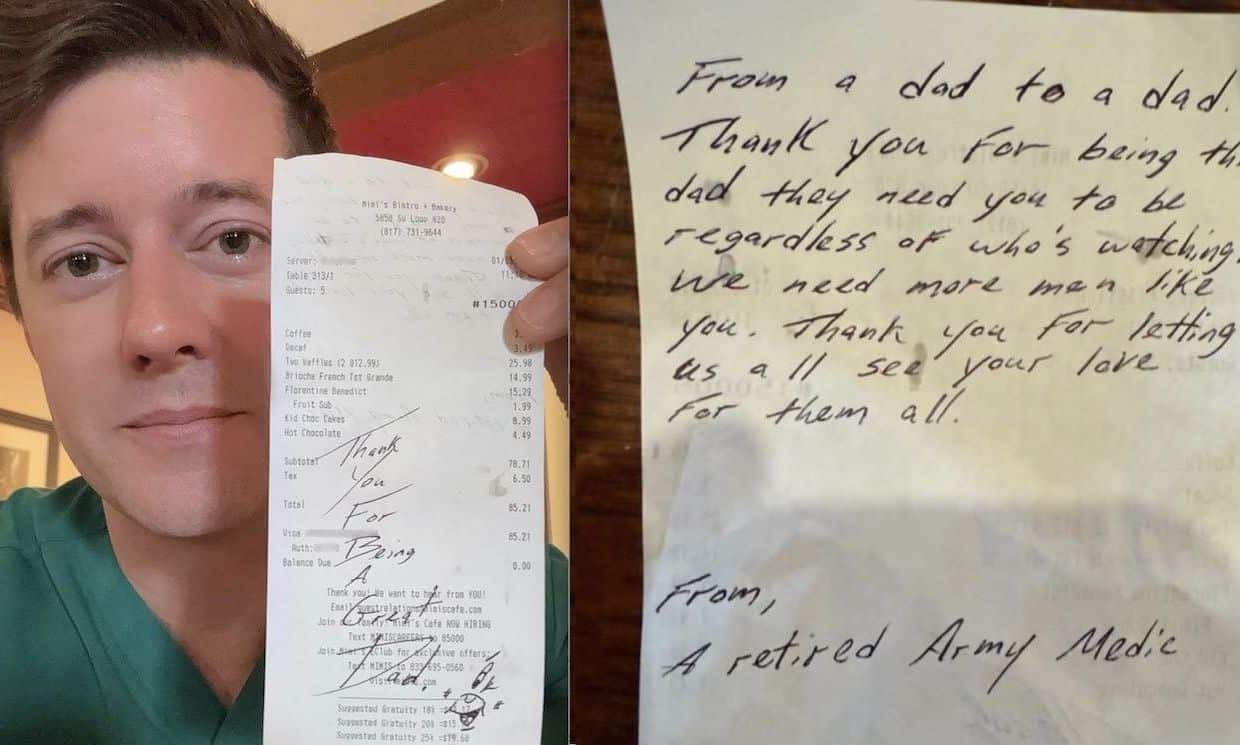 Mimi's Bistro + Bakery
5858 SW Loop 820
(817) 731-9644
Server: 01/
Table 313/1 11:
Guests: 5
#1500
Coffee
Decaf 3.49
Two Waffles (2 @12.99) 25.98
Brioche French Tst Grande 14.99
Florentine Benedict 15.29
Fruit Sub 1.99
Kid Choc Cakes 8.99
Hot Chocolate 4.49
Subtotal 78.71
Tax 6.50
Total 85.21
Visa 85.21
Auth:
Balance Due 0.00
Thank
You
For
Being
A
Great
Dad.
Thank you! We want to hear from YOU!
Email guestrelations@mimiscafe.com
Join our family! Mimi's Cafe NOW HIRING
Text MIMISCAREERS to 85000
Join Mimi's EClub for exclusive offers:
Text MIMIS to 833-695-0560
Suggested Gratuity 18%
Suggested Gratuity 20% =$15
Suggested Gratuity 25% =$19.68
From a dad to a dad.
Thank you For being th
dad they need you to be
regardless of who's watching.
We need more men like
you. Thank you For letting
us all see your love
For them all.
From,
A retired Army Medic